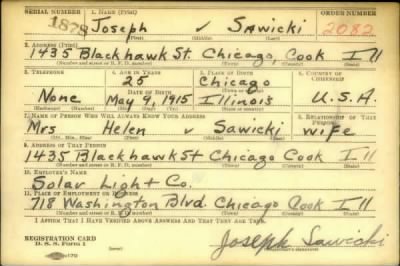 SERIAL NUMBER 1. NAME (Print) ORDER NUMBER
1878 Joseph v Sawicki 2082
(First) (Middle) (Last)
2. ADDRESS (Print)
1435 Blackhawk St. Chicago, Cook Ill
(Number and street or R. F. D. number) (Town) (County) (State)
3. TELEPHONE 4. AGE IN YEARS 5. PLACE OF BIRTH 6. COUNTRY OF CITIZENSHIP
25 Chicago
DATE OF BIRTH (Town or county)
None May 9, 1915 Illinois U.S.A.
(Exchange) (Number) (Mo.) (Day) (Yr.) (State or country)
7. NAME OF PERSON WHO WILL ALWAYS KNOW YOUR ADDRESS 8. RELATIONSHIP OF THAT PERSON
Mrs Helen v Sawicki wife
(Mr., Mrs., Miss) (First) (Middle) (Last)
9. ADDRESS OF THAT PERSON
1435 Blackhawk St Chicago Cook Ill
(Number and street or R. F. D. number) (Town) (County) (State)
10. EMPLOYER'S NAME
Solar Light Co.
11. PLACE OF EMPLOYMENT OR BUSINESS
718 Washington Blvd. Chicago Cook Ill
(Number and street or R. F. D. number) (Town) (County) (State)
I AFFIRM THAT I HAVE VERIFIED ABOVE ANSWERS AND THAT THEY ARE TRUE.
REGISTRATION CARD
D. S. S. Form 1
Joseph Sawicki